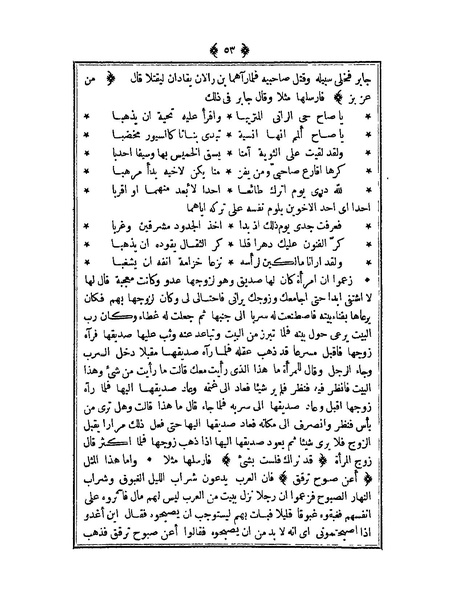 ﴿ ٥٣ ﴾
جابر فخلى سبيله وقتل صاحبيه فلما رآهما بن رالان يقادان ليقتلا قال ﴿ من
عز بز ﴾ فارسلها مثلا وقال جابر فى ذلك
* يا صاح حى الرانى المتربيا * واقرأ عليه تحية ان يذهبا *
* يا صاح ألم انها انسية * تبدى بنانا كالسيور مخضبا *
* ولقد لقيت على الثوية آمنا * يسق الخميس بها وسيقا احدبا *
* كرها اقارع صاحبى ومن يفز * منا يكن لاخيه بدأ مرهبا *
* لله درى يوم اترك طائعا * احدا لابعد منهما او اقربا *
احدا اى احد الاخوين يلوم نفسه على تركه اياهما
* فعرفت جدى يوم ذلك اذ بدا * اخذ الجدود مشرقين وغربا *
* كرّ المنون عليك دهرا قلبا * كر الثفال بقوده ان يذهبا *
* ولقد ارانا مالكين لرأسه * نزعا خزامة انفه ان يشغبا *
* زعموا ان امرأة كان لها صديق وهو لزوجها عدو وكانت معجبة قال لها
لا اشتنى ابدا حتى اجامعك وزوجك يرانى فاحتالى لى وكان لزوجها بهم فكان
يرعاها بفناء بيته فاصطنعت له سربا الى جنبها ثم جعلت له غطاء وكان رب
البيت يرعى حول بيته فلما تبرز من البيت وتباعد عنه وثب عليها صديقها فرآه
زوجها فاقبل مسرعا قد ذهب عقله فلما رآه صديقها مقبلا دخل السرب
وجاء الرجل وقال للمرأة ما هذا الذى رأيت معك قالت ما رأيت من شئ وهذا
البيت فانظر فيه فنظر فلم ير شيئا فعاد الى غنمه وعاد صديقها اليها فلما رآه
زوجها اقبل وعاد صديقها الى سربه فلما جاء قال ما هذا قالت وهل ترى من
بأس فنظر وانصرف الى مكانه فعاد صديقها اليها حتى فعل ذلك مرارا يقبل
الزوج فلا يرى شيئا ثم يعود صديقها اليها اذا ذهب زوجها فلما اكثر قال
زوج المرأة ﴿ قد تراك فلست بشئ ﴾ فارسلها مثلا * واما هذا المثل
﴿ أعن صبوح ترقق ﴾ فان العرب يدعون شراب الليل الغبوق وشراب
النهار الصبوح فزعموا ان رجلا نزل ببيت من العرب ليس لهم مال فآثروه على
انفسهم فغبقوه غبوقا قليلا فبات بهم ليستوجب ان يصبحوه فقال ابن أغدو
اذا اصبحتمونى اى انه لا بد من ان يصبحوه فقالوا أعن صبوح ترقق فذهب